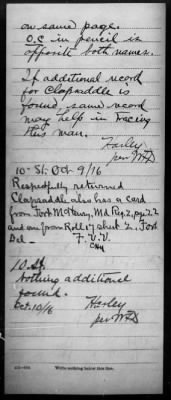 on same page.
O.C in pencil is
opposite both names.
If additional record
for Clapsaddle is
found, same record
may help in tracing
this man.
Harley
per WFD
10- St. Oct 9/16
Respectfully returned
Clapsaddle also has a card
from Fort McHenry, Md Reg 2, pge 22
and one from Roll 17 sheet 2. Fort
Del – F.V.V.
10. St.
Nothing additional
found.
Oct. 10/16 Harley
per WFD
Write nothing below this line.